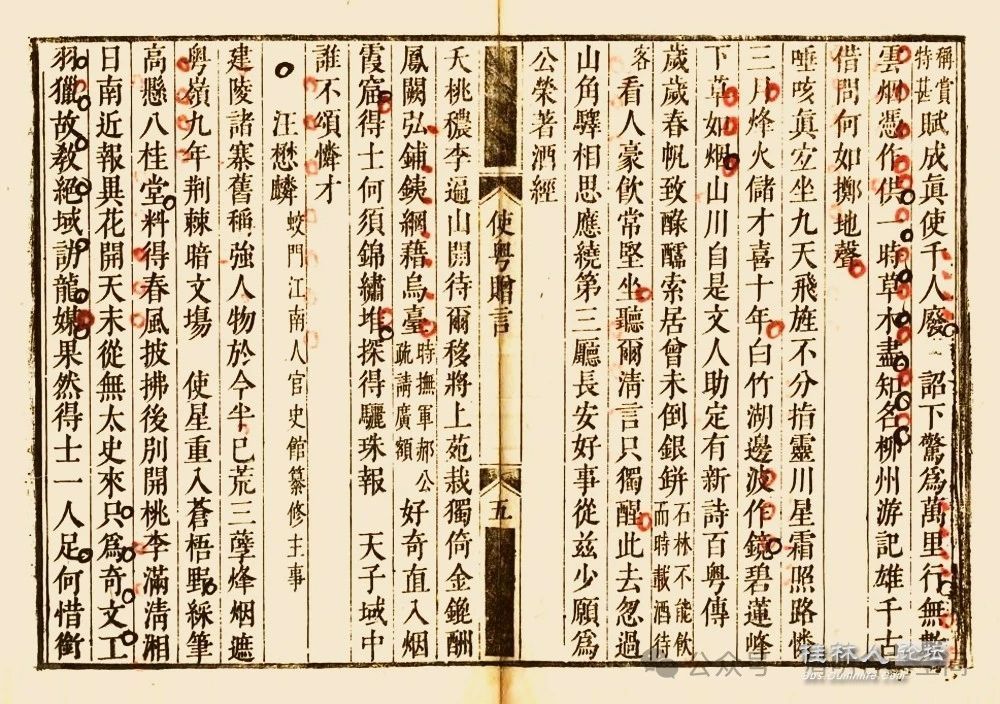 稱賞特甚賦成眞使千人廢 詔下驚爲萬里行無數
雲烟憑作供一時草木盡知名柳州游記雄千古
借問何如擲地聲
唾咳眞宜坐九天飛旌不分指靈川星霜照路憐
三月烽火儲才喜十年白竹湖邊波作鏡碧蓮峰
下草如烟山川自是文人助定有新詩百粤傳
歲歲春帆致醁醹索居曾未倒銀缾石林不能飲而時載酒待
客看人豪飲常堅坐聽爾淸言只獨醒此去忽過
山角驛相思應繞第三廳長安好事從兹少願爲
公榮著酒經
使粤贈言
五
夭桃穠李遍山開待爾移將上苑栽獨倚金鎞酬
鳳闕弘鋪鐵網藉烏臺時撫軍郝公疏請廣額好奇直入烟
霞窟得士何須錦繡堆探得驪珠報 天子域中
誰不頌憐才
汪懋麟蛟門江南人官史館纂修主事
建陵諸寨舊稱強人物於今半已荒三孽烽烟遮
粤嶺九年荆棘暗文場 使星重入蒼梧野綵筆
高懸八桂堂料得春風披拂後別開桃李滿淸湘
日南近報異花開天末從無太史來只爲奇文工
羽獵故敎絕域訪龍媒果然得士一人足何惜衝
桂林人论坛
公众号